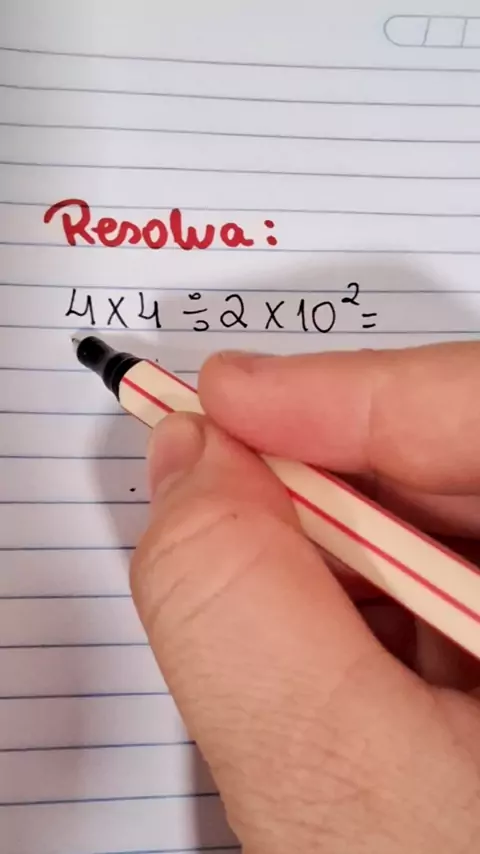 Resolva:
4 x 4 ÷ 2 x 10² =